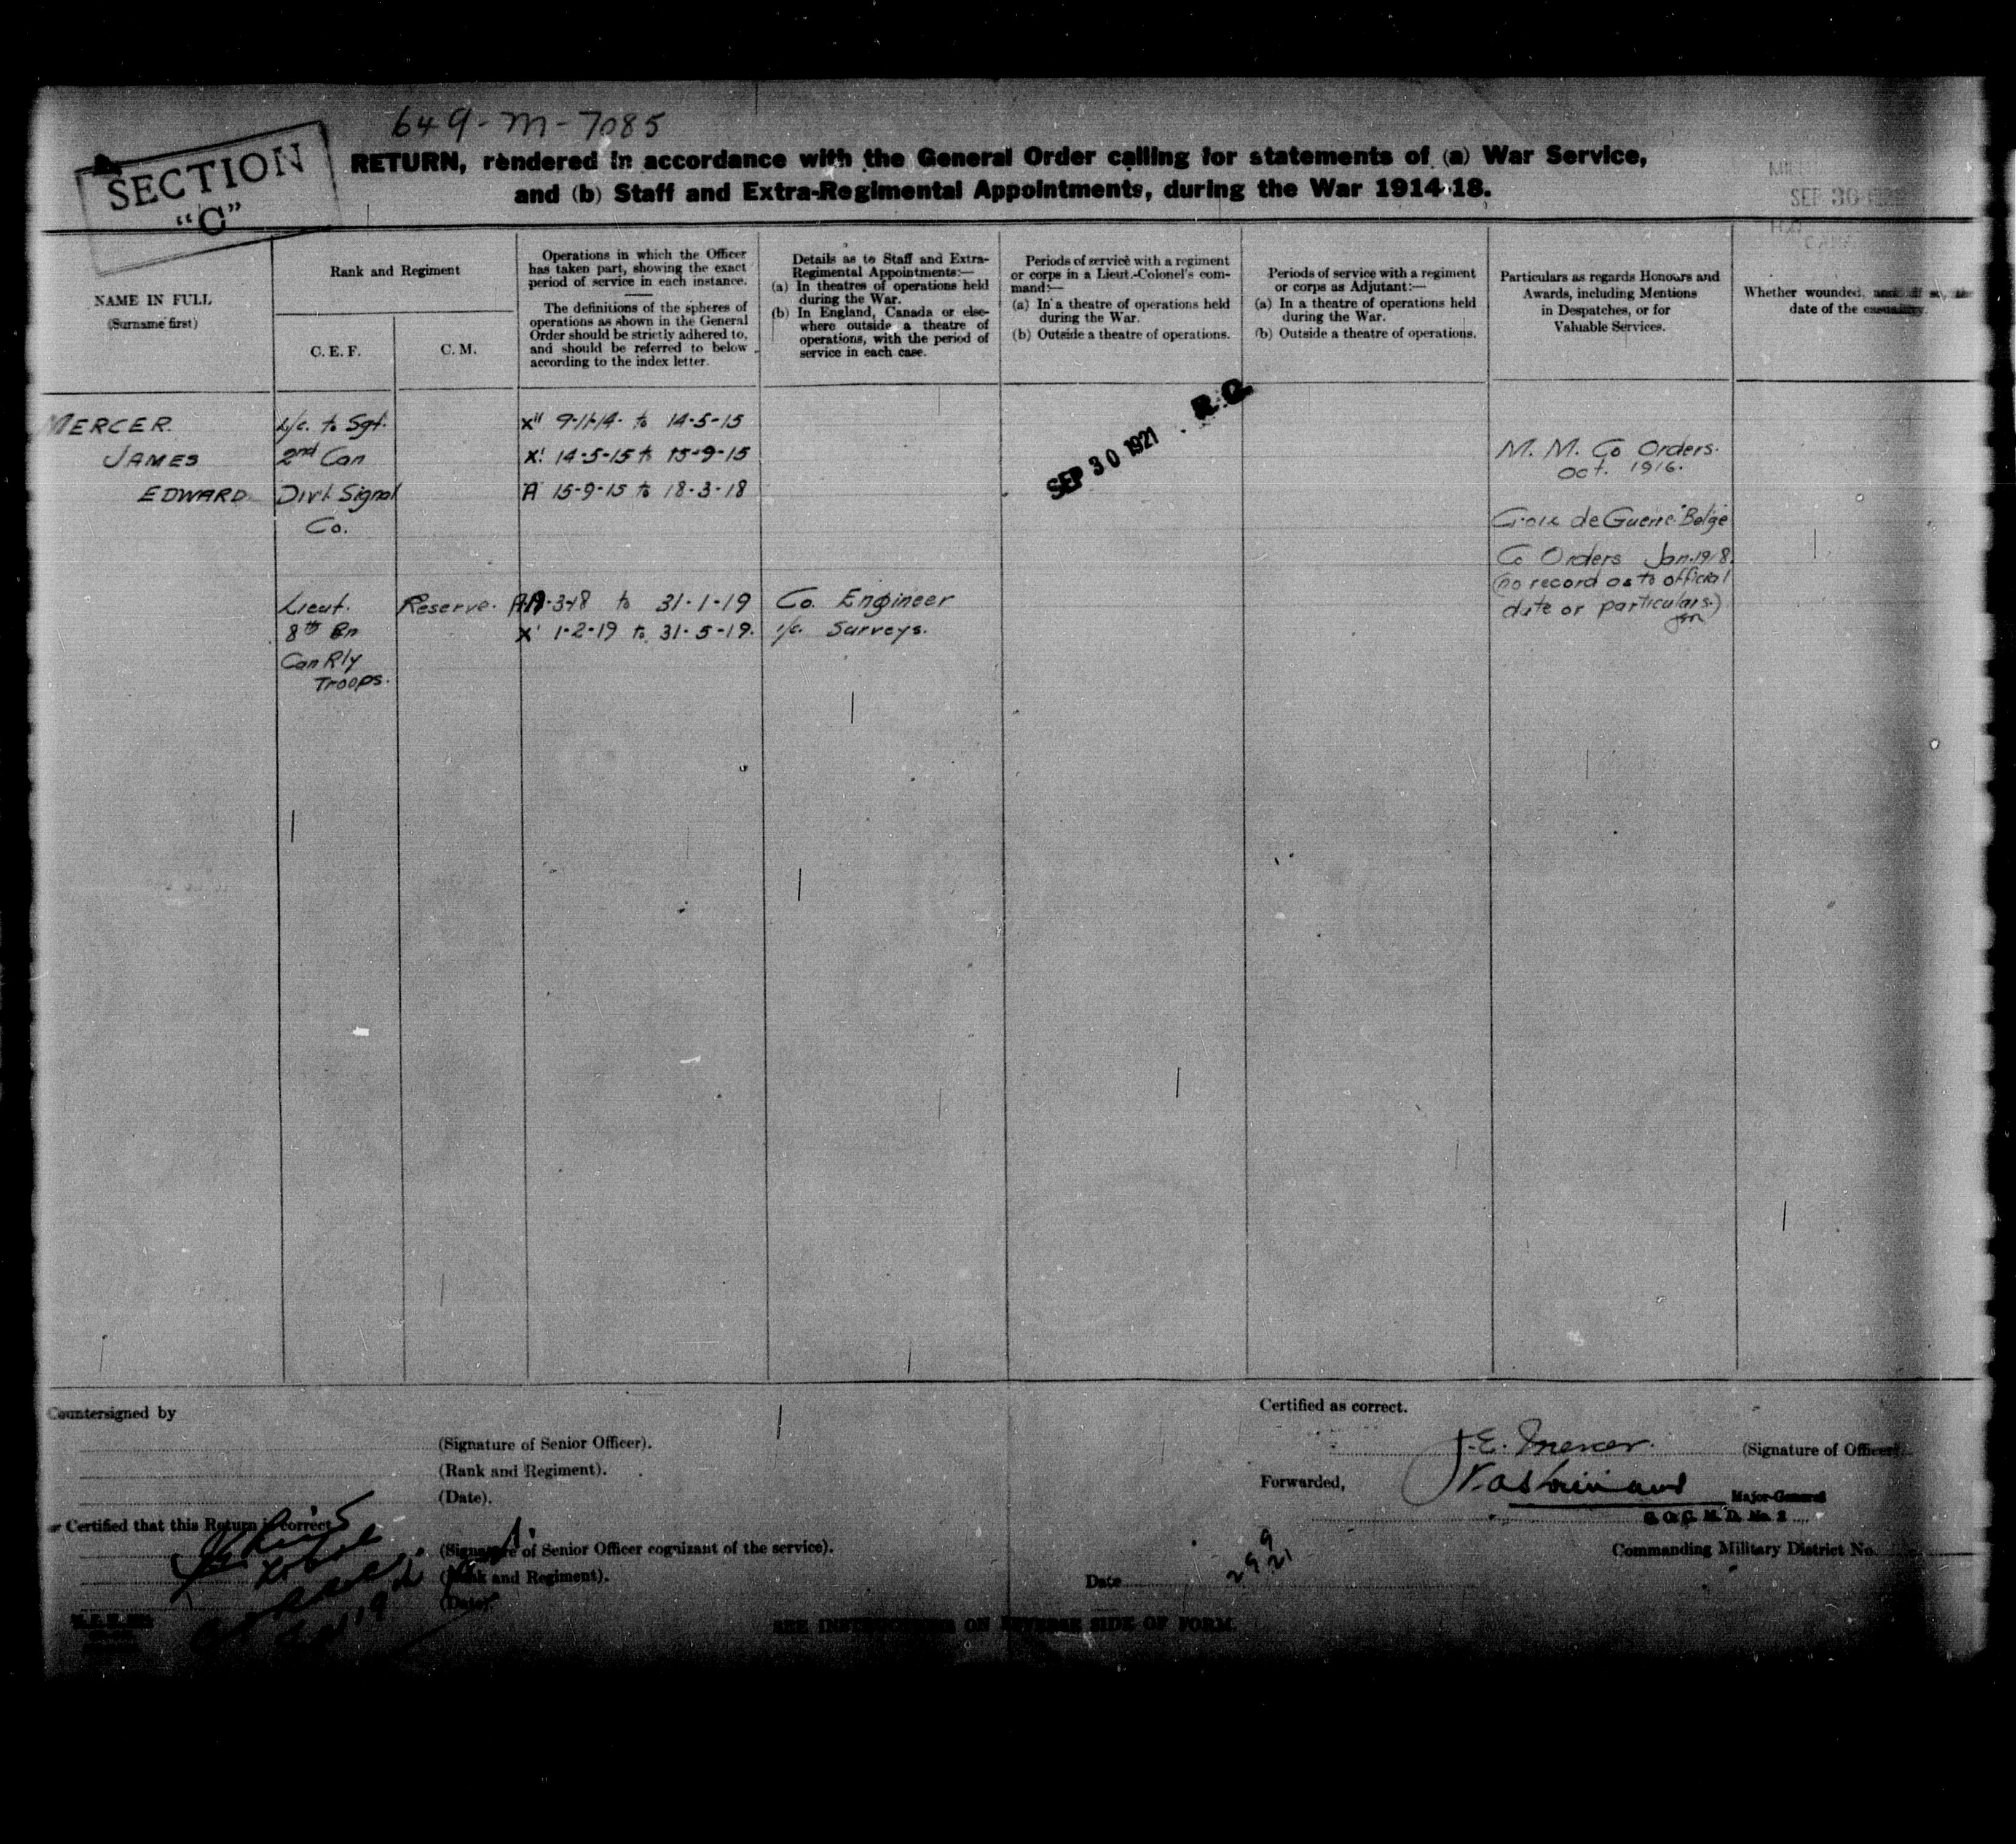 649-M-7085
SECTION
"C"
RETURN, rendered in accordance with the General Order calling for statements of (a) War Service,
and (b) Staff and Extra-Regimental Appointments, during the War 1914-18.
SEP 30
NAME IN FULL
(Surname first)
Rank and Regiment
C. E. F.
C. M.
Operations in which the Officer
has taken part, showing the exact
period of service in each instance.
The definitions of the spheres of
operations as shown in the General
Order should be strictly adhered to,
and should be referred to below
according to the index letter.
Details as to Staff and Extra-
Regimental Appointments:—
(a) In theatres of operations held
during the War.
(b) In England, Canada or else-
where outside a theatre of
operations, with the period of
service in each case.
Periods of service with a regiment
or corps in a Lieut.-Colonel's com-
mand:—
(a) In a theatre of operations held
during the War.
(b) Outside a theatre of operations.
Periods of service with a regiment
or corps as Adjutant:—
(a) In a theatre of operations held
during the War.
(b) Outside a theatre of operations.
Particulars as regards Honours and
Awards, including Mentions
in Despatches, or for
Valuable Services.
Whether wounded, and if so, the
date of the casualty.
MERCER
JAMES
EDWARD
L/c. to Sgt.
2nd Can
Divl. Signal
Co.
Lieut.
8th Bn
Can Rly
Troops.
Reserve.
X" 9-11-14 to 14-5-15
X' 14-5-15 to 15-9-15
A 15-9-15 to 18-3-18
-3-18 to 31-1-19
X' 1-2-19 to 31-5-19.
Co. Engineer
i/c. Surveys.
SEP 30 1921 R.O.
M. M. Co Orders.
Oct. 1916.
Croix de Guerre "Belge
Co Orders Jan. 1918.
(no record as to official
date or particulars.)
Countersigned by
(Signature of Senior Officer).
(Rank and Regiment).
(Date).
or Certified that this Return is correct
(Signature of Senior Officer cognizant of the service).
(Rank and Regiment).
(Date)
Certified as correct.
J. E. Mercer.
(Signature of Officer)
Forwarded,
Major-General
G. O. C. M. D. No. 2
Commanding Military District No.
Date
29 9 21
SEE INSTRUCTIONS ON REVERSE SIDE OF FORM.